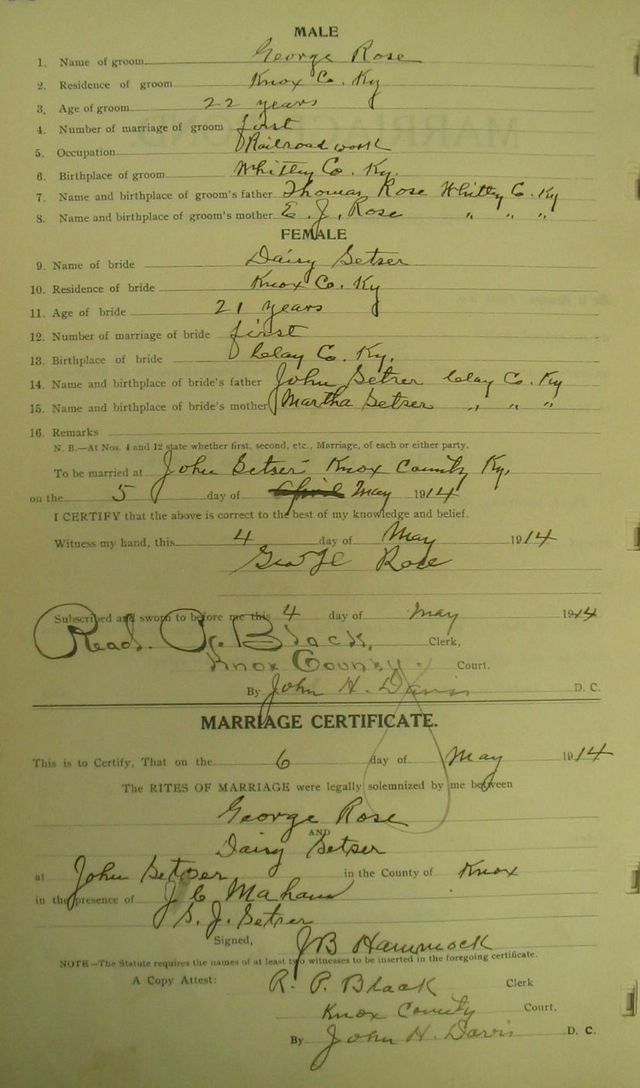 MALE
1. Name of groom George Rose
2. Residence of groom Knox Co. Ky
3. Age of groom 22 years
4. Number of marriage of groom first
5. Occupation Railroad work
6. Birthplace of groom Whitley Co. Ky.
7. Name and birthplace of groom's father Thomas Rose Whitley Co. Ky
8. Name and birthplace of groom's mother E. J. Rose " " "
FEMALE
9. Name of bride Daisy Setser
10. Residence of bride Knox Co. Ky
11. Age of bride 21 years
12. Number of marriage of bride first
13. Birthplace of bride Clay Co. Ky.
14. Name and birthplace of bride's father John Setser Clay Co. Ky
15. Name and birthplace of bride's mother Martha Setser " " "
16. Remarks
N. B.—At Nos. 4 and 12 state whether first, second, etc., Marriage, of each or either party.
To be married at John Setser Knox County Ky.
on the 5 day of April May 1914
I CERTIFY that the above is correct to the best of my knowledge and belief.
Witness my hand, this 4 day of May 1914
George Rose
Subscribed and sworn to before me this 4 day of May 1914
Read. P. Black, Clerk,
Knox County. Court.
By John H. Davis D. C.
MARRIAGE CERTIFICATE.
This is to Certify, That on the 6 day of May 1914
The RITES OF MARRIAGE were legally solemnized by me between
George Rose
AND
Daisy Setser
at John Setser in the County of Knox
in the presence of J C Mahan
S. J. Setser
Signed, J B Hammock
NOTE—The Statute requires the names of at least two witnesses to be inserted in the foregoing certificate.
A Copy Attest: R. P. Black Clerk
Knox County Court,
By John H. Davis D. C.